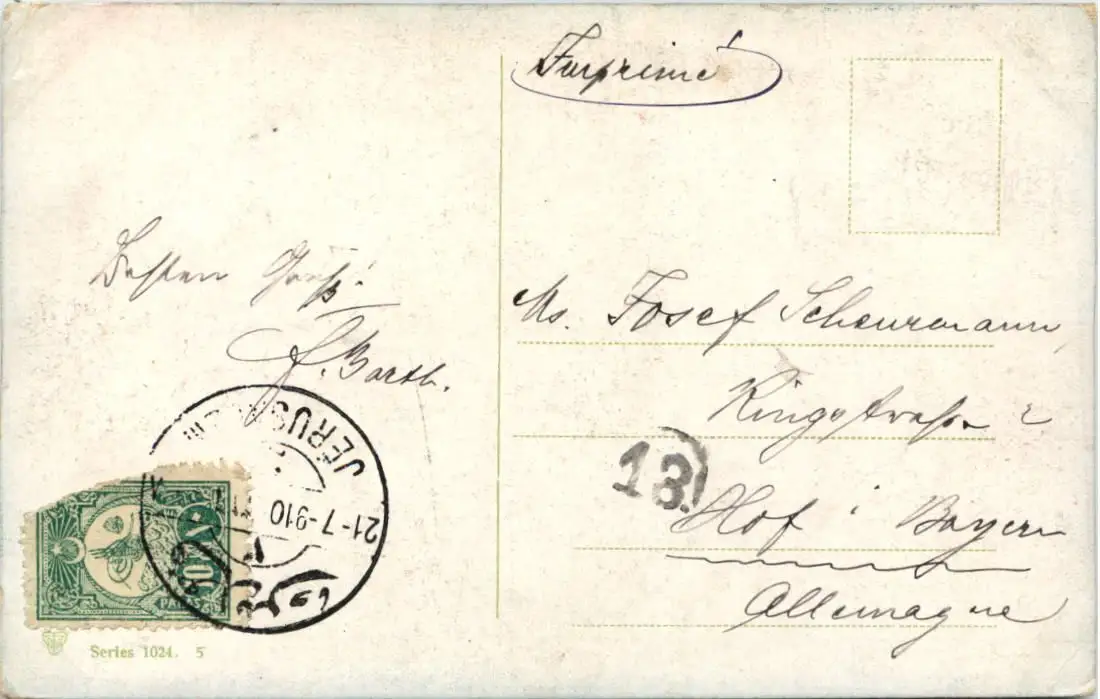 Imprimé
Besten Gruß.
J. Barth.
Ms. Josef Scheurmann
Ringstrasse 2
Hof i Bayern
Allemagne
13
JERUSALEM
21-7-910
10
PARAS
Series 1024. 5